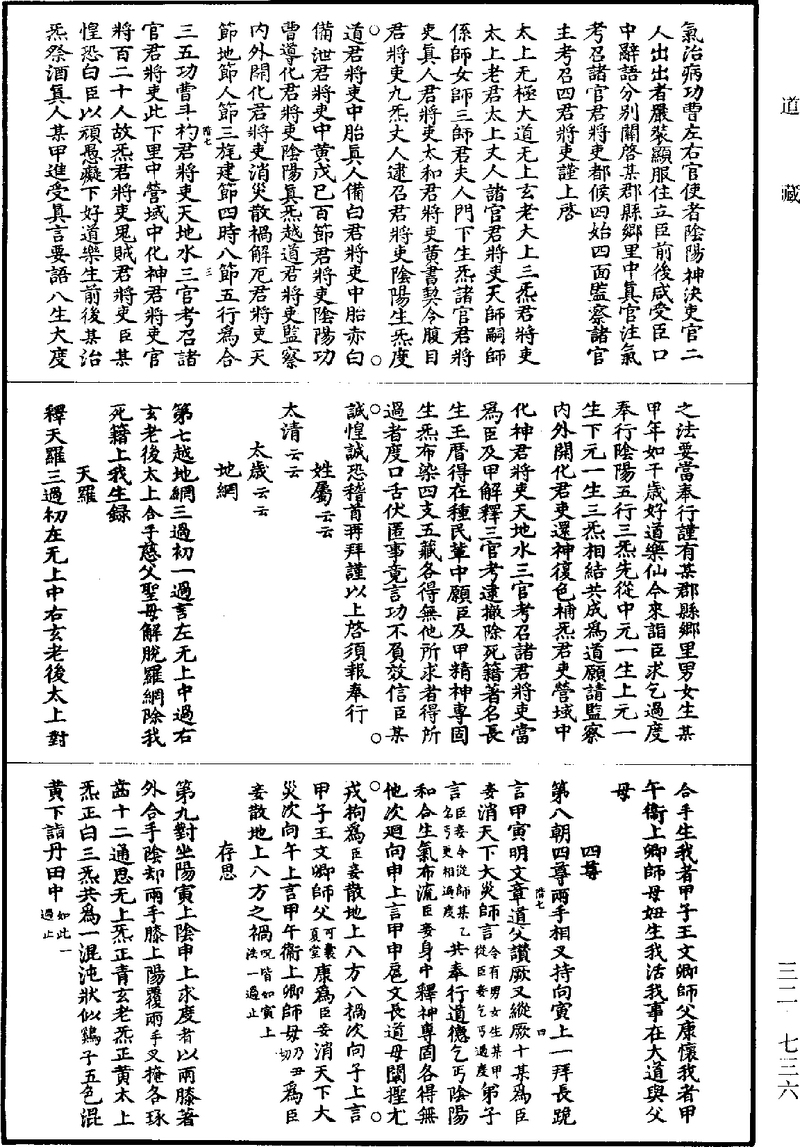 道藏
氣治病功曹左右官使者陰陽神決吏官二
人出出者嚴裝顯服住立臣前後咸受臣口
中辭語分別關啓某郡縣鄉里中真官注氣
考召諸官君將吏都候四始四面監察諸官
主考召四君將吏謹上啓
太上无極大道无上玄老大上三炁君將吏
太上老君太上丈人諸官君將吏天師嗣師
係師女師三師君夫人門下生炁諸官君將
吏真人君將吏太和君將吏黄書契令腹目
君將吏九炁丈人逮召君將吏陰陽生炁度
道君將吏中胎真人備白君將吏中胎赤白
備泄君將吏中黄戊巳百節君將吏陰陽功
曹導化君將吏陰陽真炁越道君將吏監察
内外開化君將吏消災散禍解厄君將吏天
節地節人節三㫌建節四時八節五行爲合
三五功曹斗杓君將吏天地水三官考召諸
官君將吏此下里中營域中化神君將吏官
將百二十人故炁君將吏鬼賊君將吏臣某
惶恐白臣以頑愚癡下好道樂生前後某治
炁祭酒真人某甲進受真言要語八生大度
階七 三
之法要當奉行謹有某郡縣鄉里男女生某
甲年如干歲好道樂仙今來詣臣求乞過度
奉行陰陽五行三炁先從中元一生上元一
生下元一生三炁相結共成爲道願請監察
内外開化君吏還神復色補炁君吏營域中
化神君將吏天地水三官考召諸君將吏當
爲臣及甲解釋三官考逮撤除死籍著名長
生王曆得在種民輩中願臣及甲精神專固
生炁布染四支五藏各得無他所求者得所
過者度口舌伏匿事竟言功不負效信臣某
誠惶誠恐稽首再拜謹以上啓須報奉行
姓屬云云
太清云云
太歲云云
地網
第七越地網三過初一過言左无上中過右
玄老後太上合手慈父聖母解脫羅網除我
死籍上我生録
天羅
釋天羅三過初左无上中右玄老後太上對
合手生我者甲子王文卿師父康懷我者甲
午衞上卿師母妞生我活我事在大道與父
母
四尊
第八朝四尊兩手相叉持向寅上一拜長跪
階七 四
言甲寅明文章道父讚厥叉縱厥十某爲臣
妾消天下大災師言今有男女生某甲從臣妾乞丐過度弟子
言臣妾今從師某乙乞丐更相過度共奉行道德乞丐陰陽
和合生氣布流臣妾身中釋神專固各得無
他次迴向申上言甲申扈文長道母闡㨖尢
戎拘爲臣妾散地上八方八禍次向子上言
甲子王文卿師父可囊夏堂康爲臣妾消天下大
災次向午上言甲午衞上卿師母乃丑切爲臣
妾散地上八方之禍呪皆如寅上法一過止
存思
第九對坐陽寅上陰申上求度者以兩膝著
外合手陰却兩手膝上陽覆兩手叉掩各琢
齒十二通思无上炁正青玄老炁正黄太上
炁正白三炁共爲一混沌狀似鷄子五色混
黄下詣丹田中如此一過止
三二 七三六